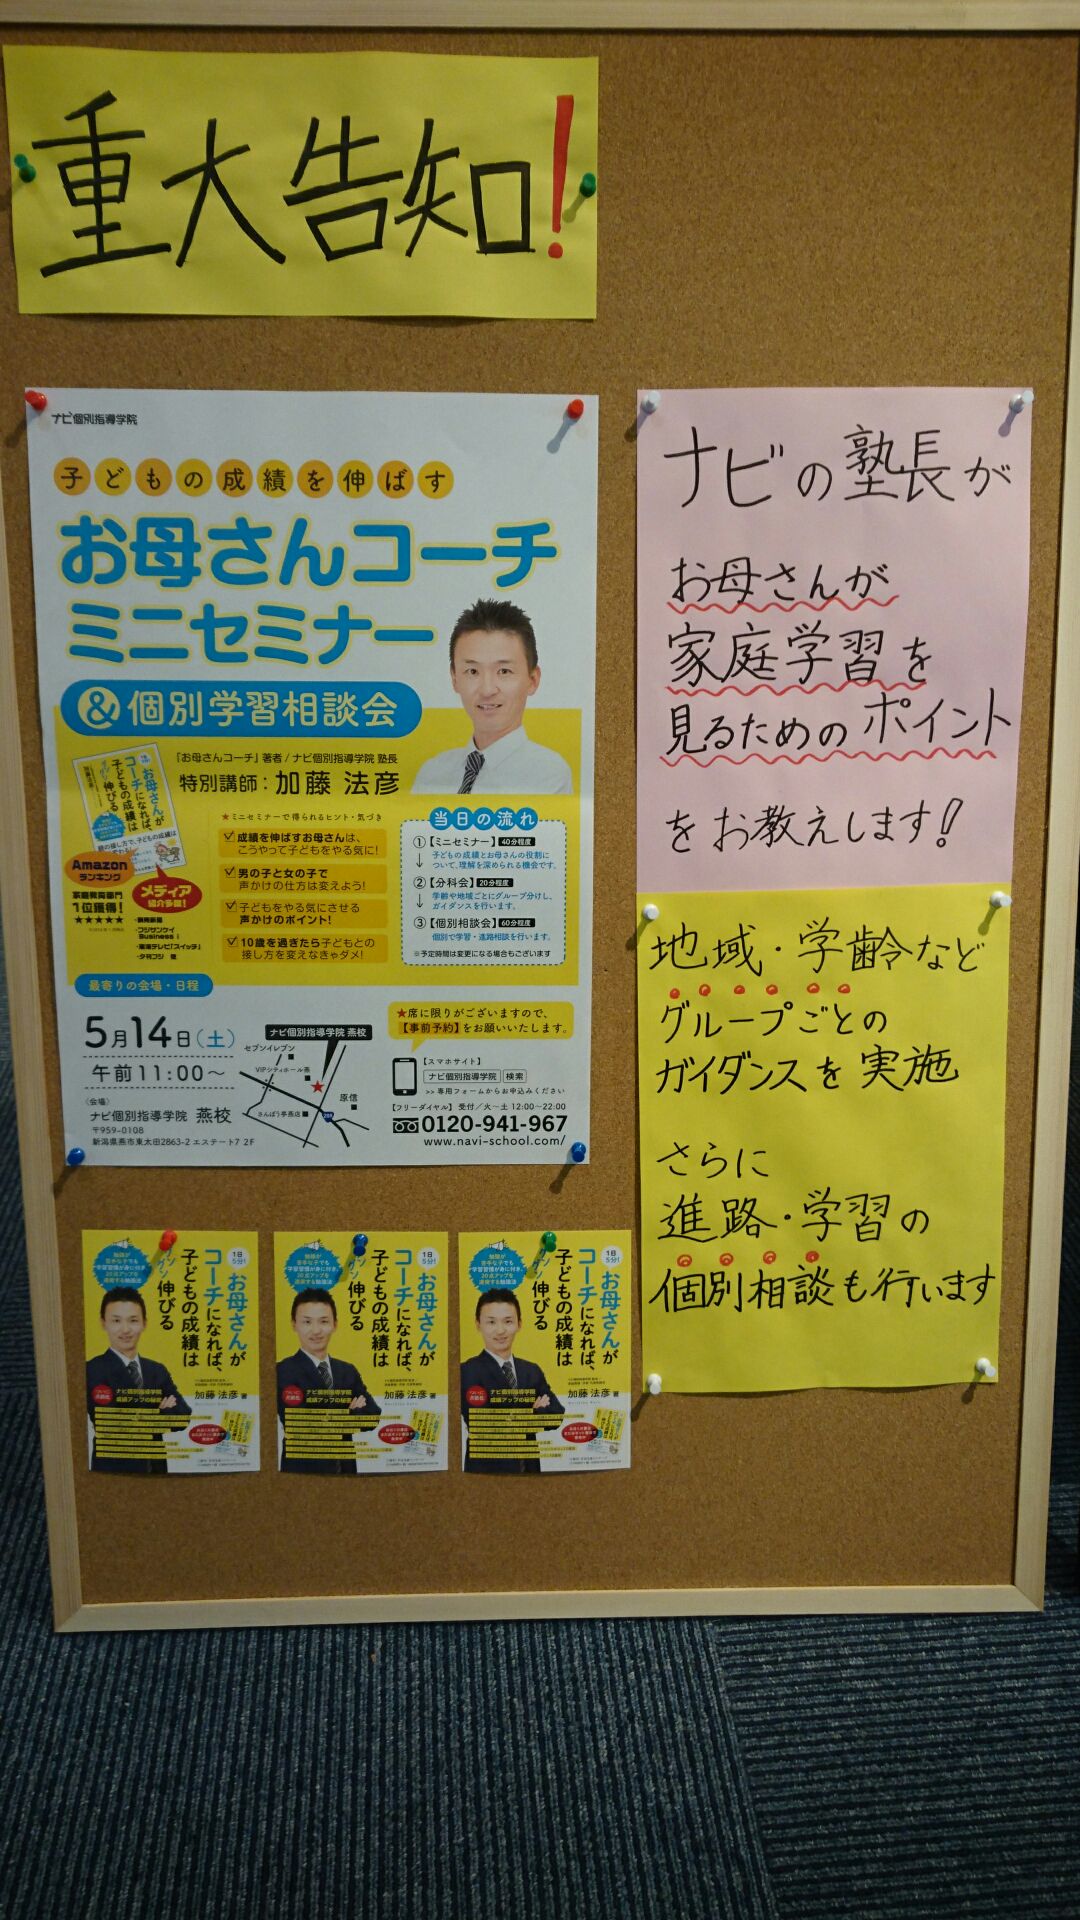 重大告知!
ナビ個別指導学院
子どもの成績を伸ばす
お母さんコーチ
ミニセミナー
&個別学習相談会
『お母さんコーチ』著者/ナビ個別指導学院 塾長
特別講師:加藤 法彦
お母さんが
コーチになれば、
子どもの成績は
伸びる
Amazon
ランキング
家庭教育部門
1位獲得!
★★★★★
メディア
紹介多数!
・フジサンケイ
Business i
・東海テレビ「スイッチ」
・夕刊フジ 他
★ミニセミナーで得られるヒント・気づき
成績を伸ばすお母さんは、
こうやって子どもをやる気に!
男の子と女の子で
声かけの仕方は変えよう!
子どもをやる気にさせる
声かけのポイント!
10歳を過ぎたら子どもとの
接し方を変えなきゃダメ!
当日の流れ
①【ミニセミナー】40分程度
子どもの成績とお母さんの役割に
ついて、理解を深められる機会です。
↓
②【分科会】20分程度
学齢や地域ごとにグループ分けし、
ガイダンスを行います。
↓
③【個別相談会】60分程度
個別で学習・進路相談を行います。
※予定時間は変更になる場合もございます
最寄りの会場・日程
5月14日(土)
午前11:00〜
〈会場〉
ナビ個別指導学院 燕校
〒959-0108
新潟県燕市東太田2863-2 エステート7 2F
ナビ個別指導学院 燕校
セブンイレブン
VIPシティホール燕
原信
さんぱう亭燕店
289
★席に限りがございますので、
【事前予約】をお願いいたします。
【スマホサイト】
ナビ個別指導学院 検索
>>専用フォームからお申込みください
【フリーダイヤル】 受付/火〜土 12:00〜22:00
0120-941-967
www.navi-school.com/
ナビの塾長が
お母さんが
家庭学習を
見るためのポイント
をお教えします!
地域・学齢など
グループごとの
ガイダンスを実施
さらに
進路・学習の
個別相談も行います
1日5分!
お母さんが
コーチになれば、
子どもの成績は
伸びる
加藤 法彦 著
ナビ個別指導学院
成績アップの秘密
1日5分!
お母さんが
コーチになれば、
子どもの成績は
伸びる
加藤 法彦 著
ナビ個別指導学院
成績アップの秘密
1日5分!
お母さんが
コーチになれば、
子どもの成績は
伸びる
加藤 法彦 著
ナビ個別指導学院
成績アップの秘密